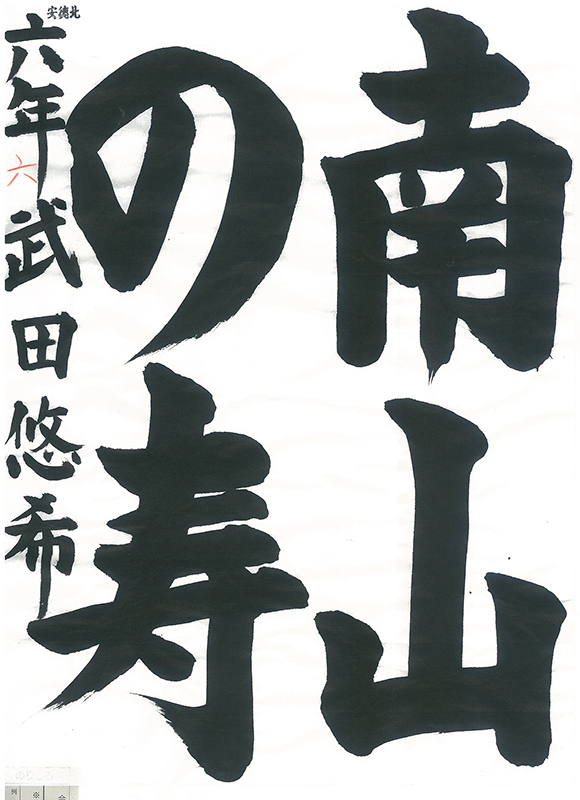 南山
の寿
安徳北
六年
六
武田悠希
例
※